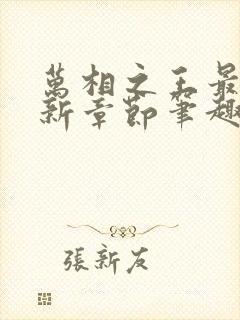 萬相之王最
新章節筆趣
張新友